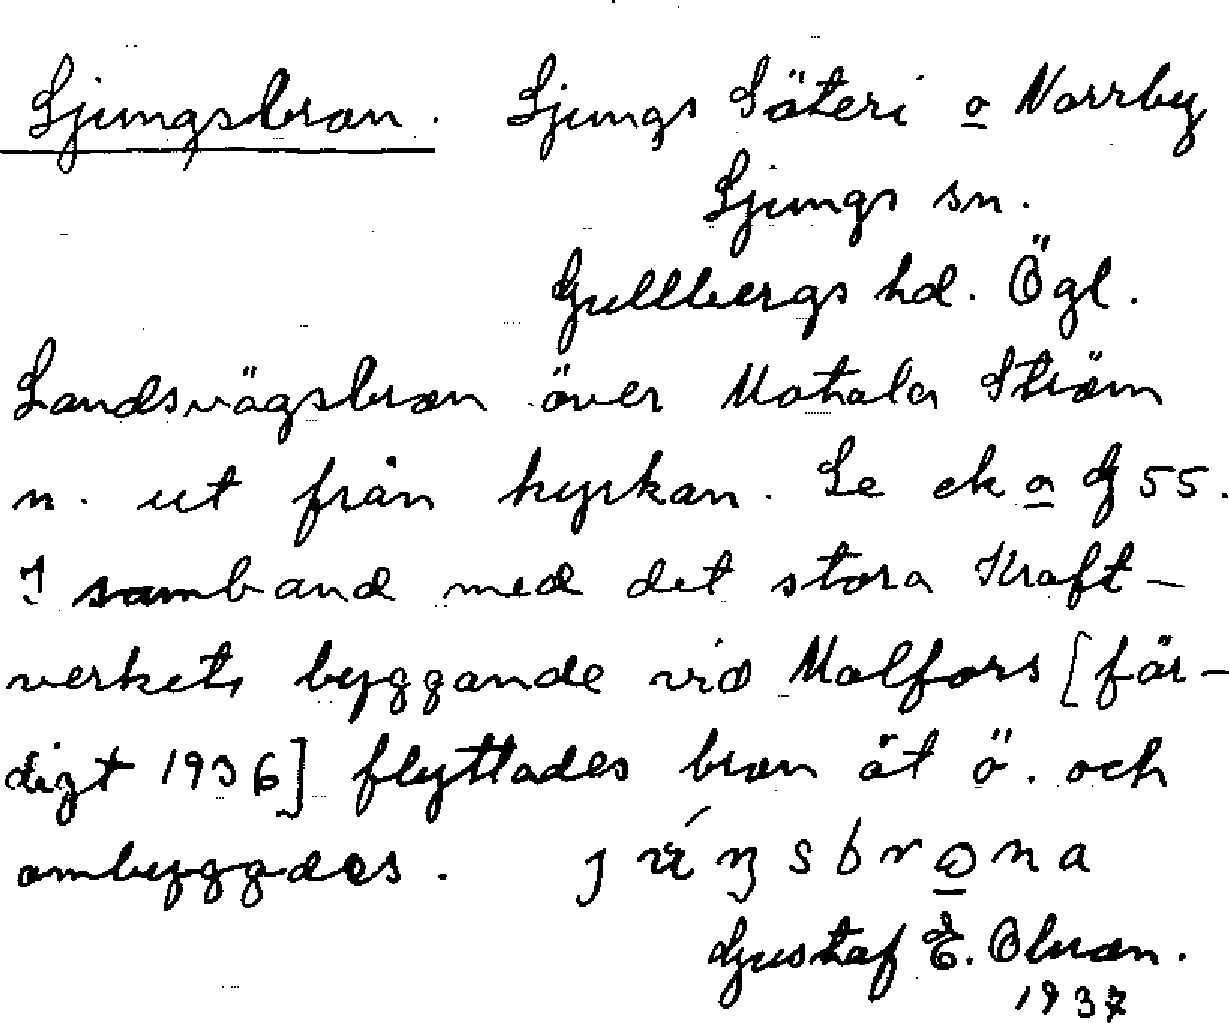 Ljungsbron. Ljungs Säteri o Norrby
Ljungs sn.
Gullbergs hd. Ögl.
Landsvägsbron över Motala Ström
n. ut från kyrkan. Se ek a df 55.
I samband med det stora Kraft-
verkets byggande vid Malfors [fär-
digt 1936] flyttades bron åt ö. och
ombyggdes. j ú ŋ s b r ə n a
Gustaf E. Olson.
1937